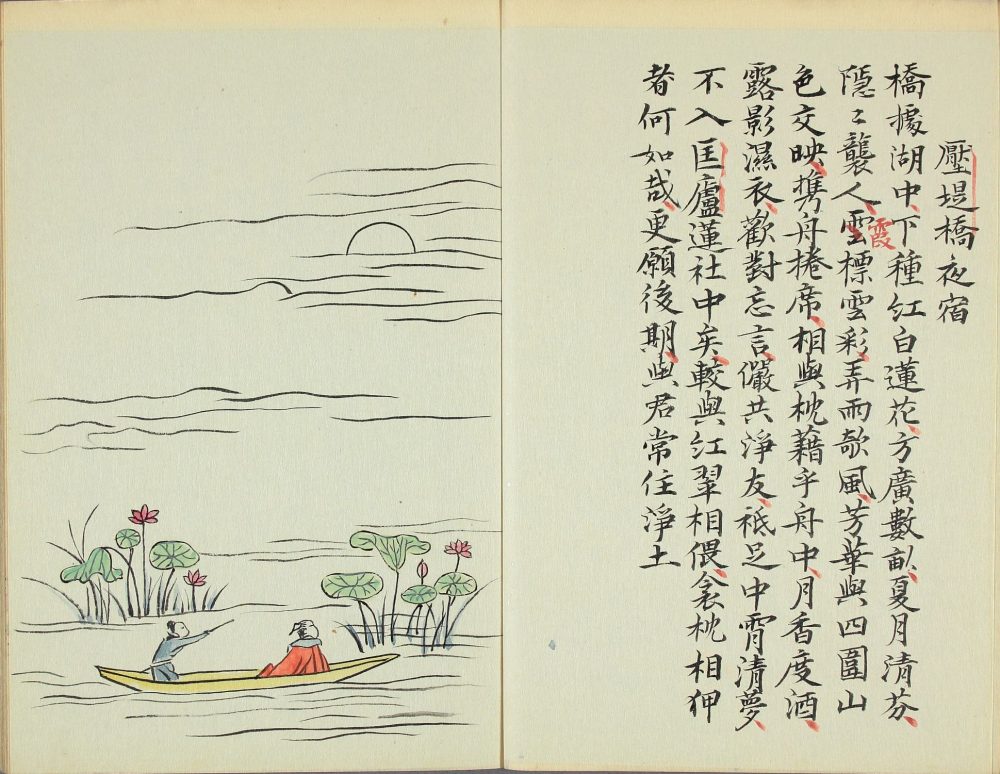 壓堤橋夜宿
橋據湖中下種紅白蓮花方廣數畝夏月清芬
隱〻襲人雲標雲彩弄雨欹風芳華與四圍山
霞
色交映携舟捲席相與枕藉乎舟中月香度酒
露影濕衣歡對忘言儼共淨友袛足中霄清夢
不入匡廬蓮社中矣較與紅翠相偎衾枕相狎
者何如哉更願後期與君常住淨土